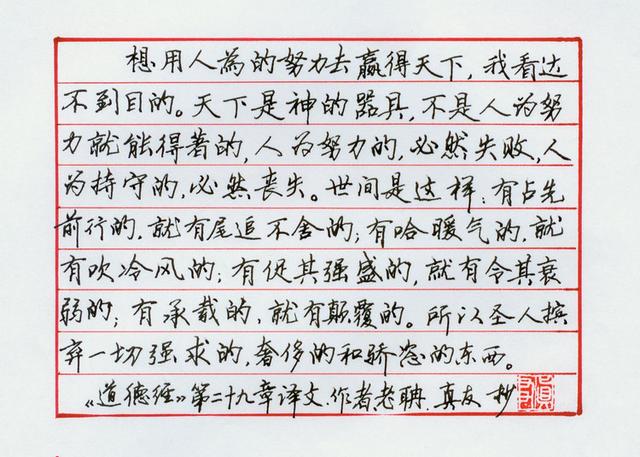 想用人為的努力去赢得天下，我看达
不到目的。天下是神的器具，不是人为努
力就能得著的，人为努力的，必然失败，人
为持守的，必然丧失。世间是这样：有占先
前行的，就有尾追不舍的；有哈暖气的，就
有吹冷风的；有促其强盛的，就有令其衰
弱的；有承载的，就有颠覆的。所以圣人摈
弃一切强求的，奢侈的和骄恣的东西。
《道德经》第二十九章译文.作者老聃.真友 抄